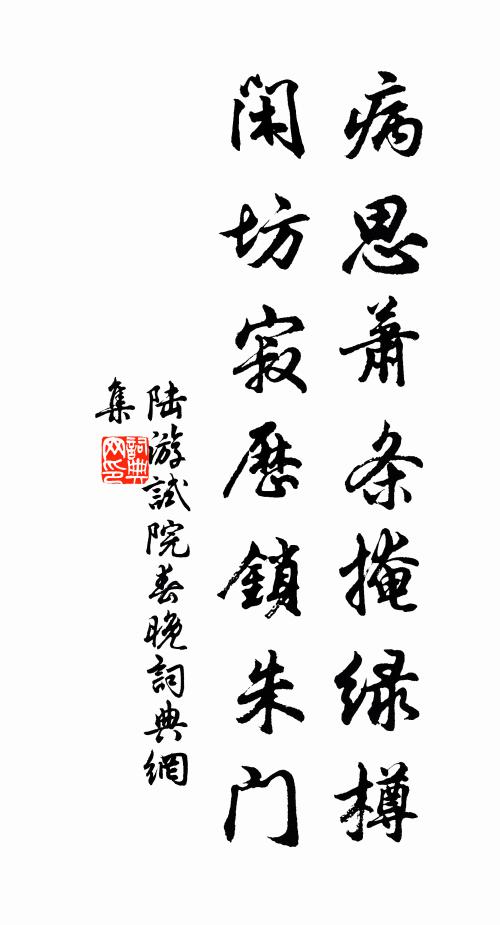 病思蕭条掩绿樽
闲坊寂历鎖朱门
陆游試院春晚詞典網
集
詞典网印